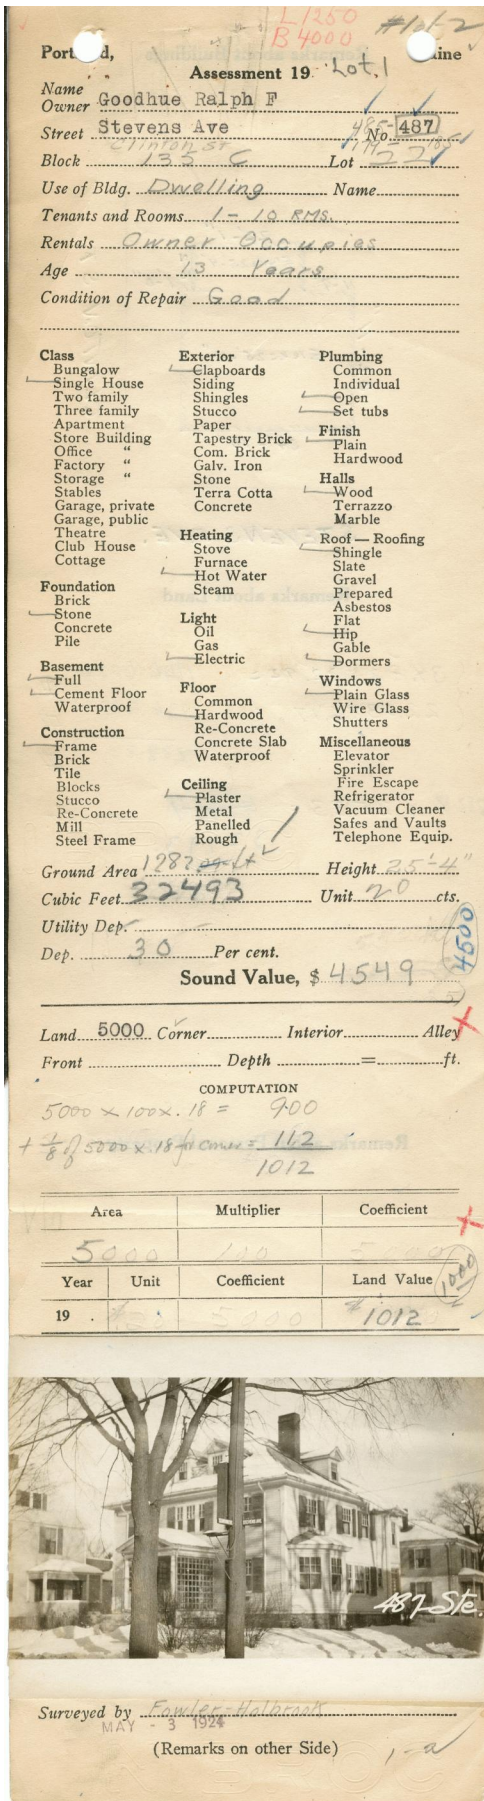 L 1250
B 4000
#1 of 2
Portland, Maine
Assessment 19 Lot. 1
Name
Owner Goodhue Ralph F
Street Stevens Ave No. 487
Clinton St
Block 135 C Lot 22
Use of Bldg. Dwelling Name
Tenants and Rooms 1 - 10 RMS.
Rentals Owner Occupies
Age 13 Years
Condition of Repair Good
Class
Bungalow
Single House
Two family
Three family
Apartment
Store Building
Office "
Factory "
Storage "
Stables
Garage, private
Garage, public
Theatre
Club House
Cottage
Foundation
Brick
Stone
Concrete
Pile
Basement
Full
Cement Floor
Waterproof
Construction
Frame
Brick
Tile
Blocks
Stucco
Re-Concrete
Mill
Steel Frame
Exterior
Clapboards
Siding
Shingles
Stucco
Paper
Tapestry Brick
Com. Brick
Galv. Iron
Stone
Terra Cotta
Concrete
Heating
Stove
Furnace
Hot Water
Steam
Light
Oil
Gas
Electric
Floor
Common
Hardwood
Re-Concrete
Concrete Slab
Waterproof
Ceiling
Plaster
Metal
Panelled
Rough
Plumbing
Common
Individual
Open
Set tubs
Finish
Plain
Hardwood
Halls
Wood
Terrazzo
Marble
Roof — Roofing
Shingle
Slate
Gravel
Prepared
Asbestos
Flat
Hip
Gable
Dormers
Windows
Plain Glass
Wire Glass
Shutters
Miscellaneous
Elevator
Sprinkler
Fire Escape
Refrigerator
Vacuum Cleaner
Safes and Vaults
Telephone Equip.
Ground Area 1282 Height 25'-4"
Cubic Feet 32493 Unit 20 cts.
Utility Dep.
Dep. 30 Per cent.
4500
Sound Value, $ 4549
Land 5000 Corner Interior Alley
Front Depth = ft.
COMPUTATION
5000 x 100 x .18 = 900
+ 1/8 of 5000 x .18 for corner = 112
1012
Area Multiplier Coefficient
5000 100 5000
Year Unit Coefficient Land Value
1000
19 . 5000 $1012
487 Ste.
Surveyed by Fowler-Holbrook
MAY - 3 1924
(Remarks on other Side)